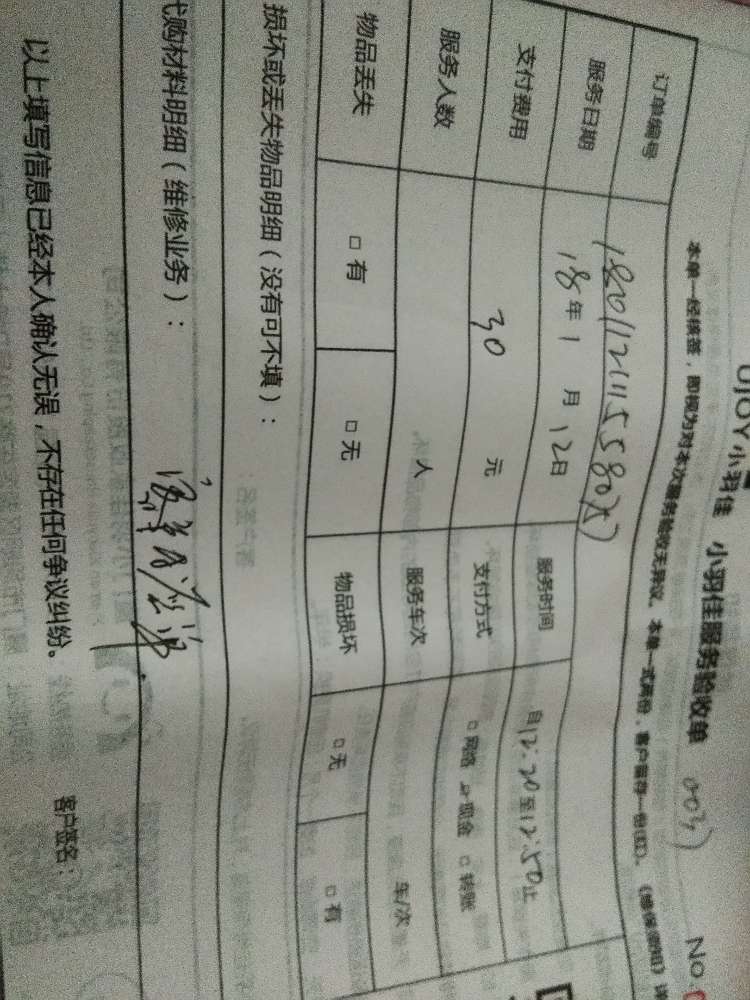 UJOY小羽佳 小羽佳服务验收单 No
本单一经核签，即视为对本次服务验收无异议。本单一式两份，客户留存一份(红)。
订单编号
服务日期 18年1月12日 服务时间 自12:20至12:50止
支付费用 30 元 支付方式 □网络 现金 □转账
服务人数 人 服务车次 车/次
物品丢失 □有 □无 物品损坏 □无 □有
损坏或丢失物品明细（没有可不填）：
代购材料明细（维修业务）：
以上填写信息已经本人确认无误，不存在任何争议纠纷。 客户签名：